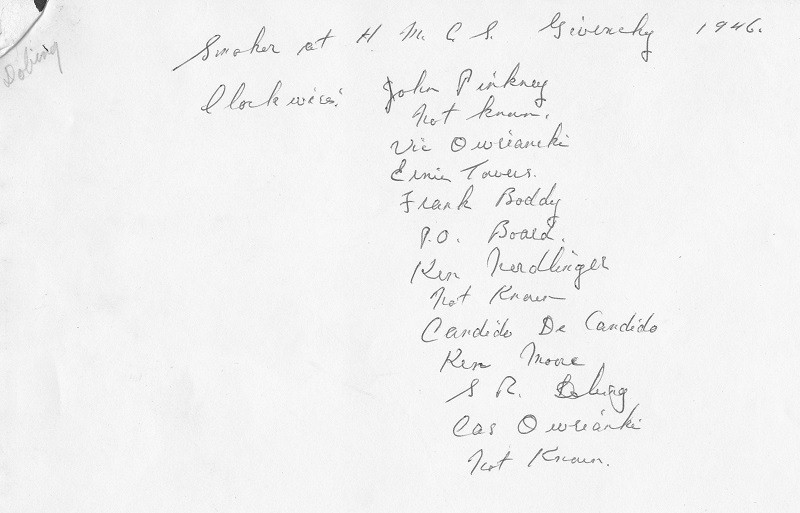 Dobing
Smoker at H M. C. S. Givenchy 1946.
Clockwise: John Pinkney
Not known.
Vic Owsianski
Ernie Towers.
Frank Boddy
P.O. Board.
Ken Nerdlinger
Not Known
Candido De Candido
Ken Moore
S R. Dobing
Cas Owsianki
Not Known.